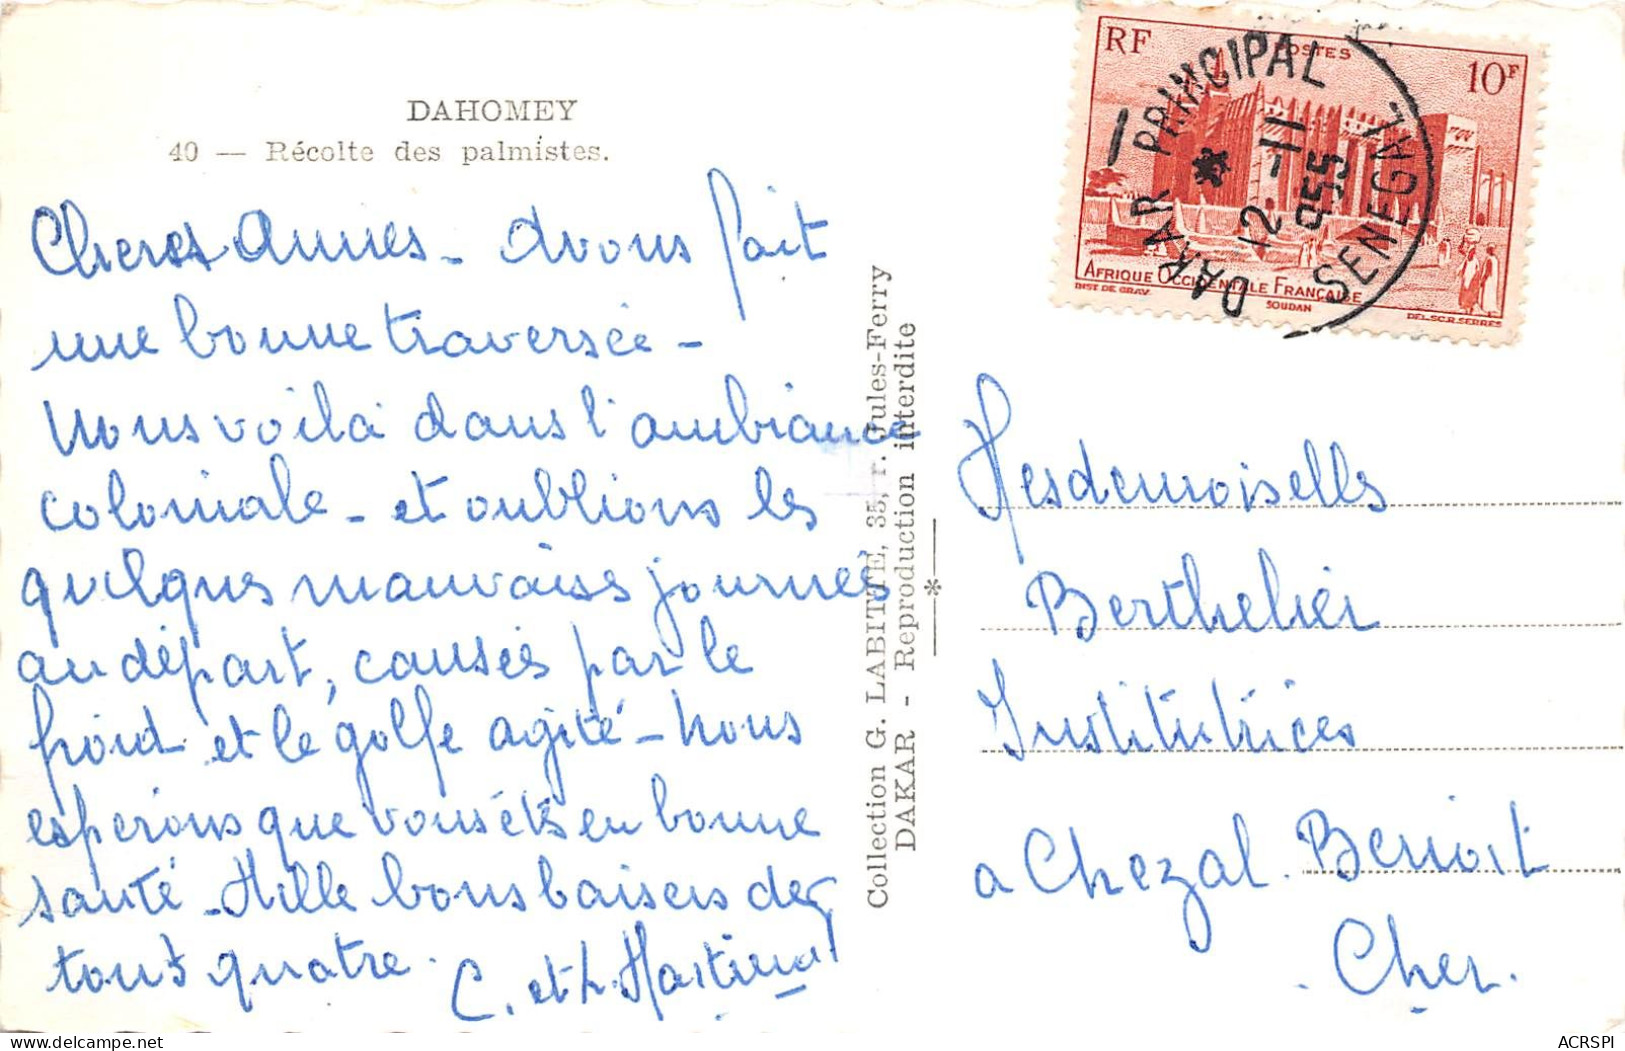 DAHOMEY
40 — Récolte des palmistes.
Cheres Annes - Avons fait
une bonne traversée -
Nous voilà dans l'ambiance
coloniale - et oublions les
quelques mauvaises journées
au départ, causées par le
froid et le golfe agité - Nous
espérons que vous êtes en bonne
santé - Mille bons baisers de
tous quatre.
C. et L.
Collection G. LABITTE, 35, r. Jules-Ferry
DAKAR - Reproduction interdite
RF
POSTES
10F
AFRIQUE OCCIDENTALE FRANÇAISE
DIST DE GRAV.
SOUDAN
DEL.SC.R.SERRES
DAKAR PRINCIPAL
12 - 11
955
SENEGAL
Mesdemoiselles
Berthelier
Institutrices
a Chezal. Benoit
. Cher.
ACRSPI